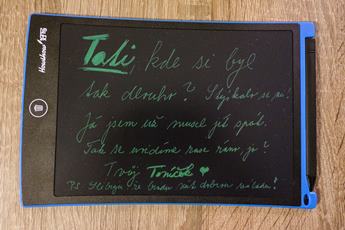 Howshow
Tati, kde si byl
tak dlouho? Stýskalo se mi!
Já jsem už musel jít spát.
Tak se uvidíme zase ráno, jo?
Tvůj Toníček ♥
PS. Slibuju že budu mít dobrou náladu!